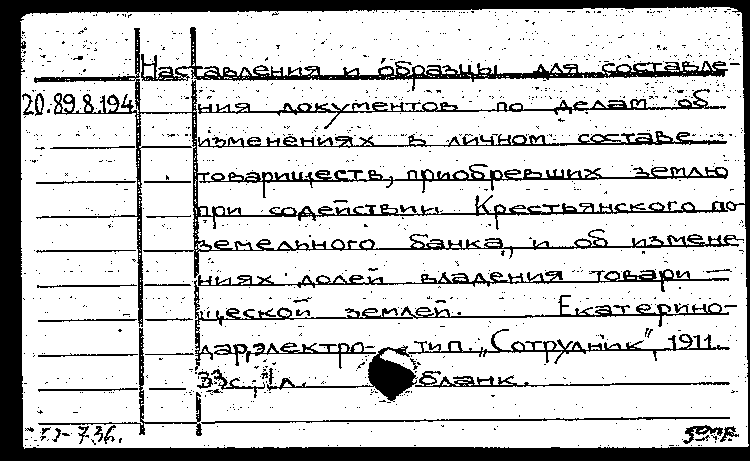 Наставления и образцы для составле-
20.89.8.194 ния документов по делам об
изменениях в личном составе
товариществ, приобревших землю
при содействии Крестьянского по-
земельного банка, и об измене-
ниях долей владения товари-
щеской землей. Екатерино-
дар, электро-тип. „Сотрудник", 1911.
33с., 1л. бланк.
736.